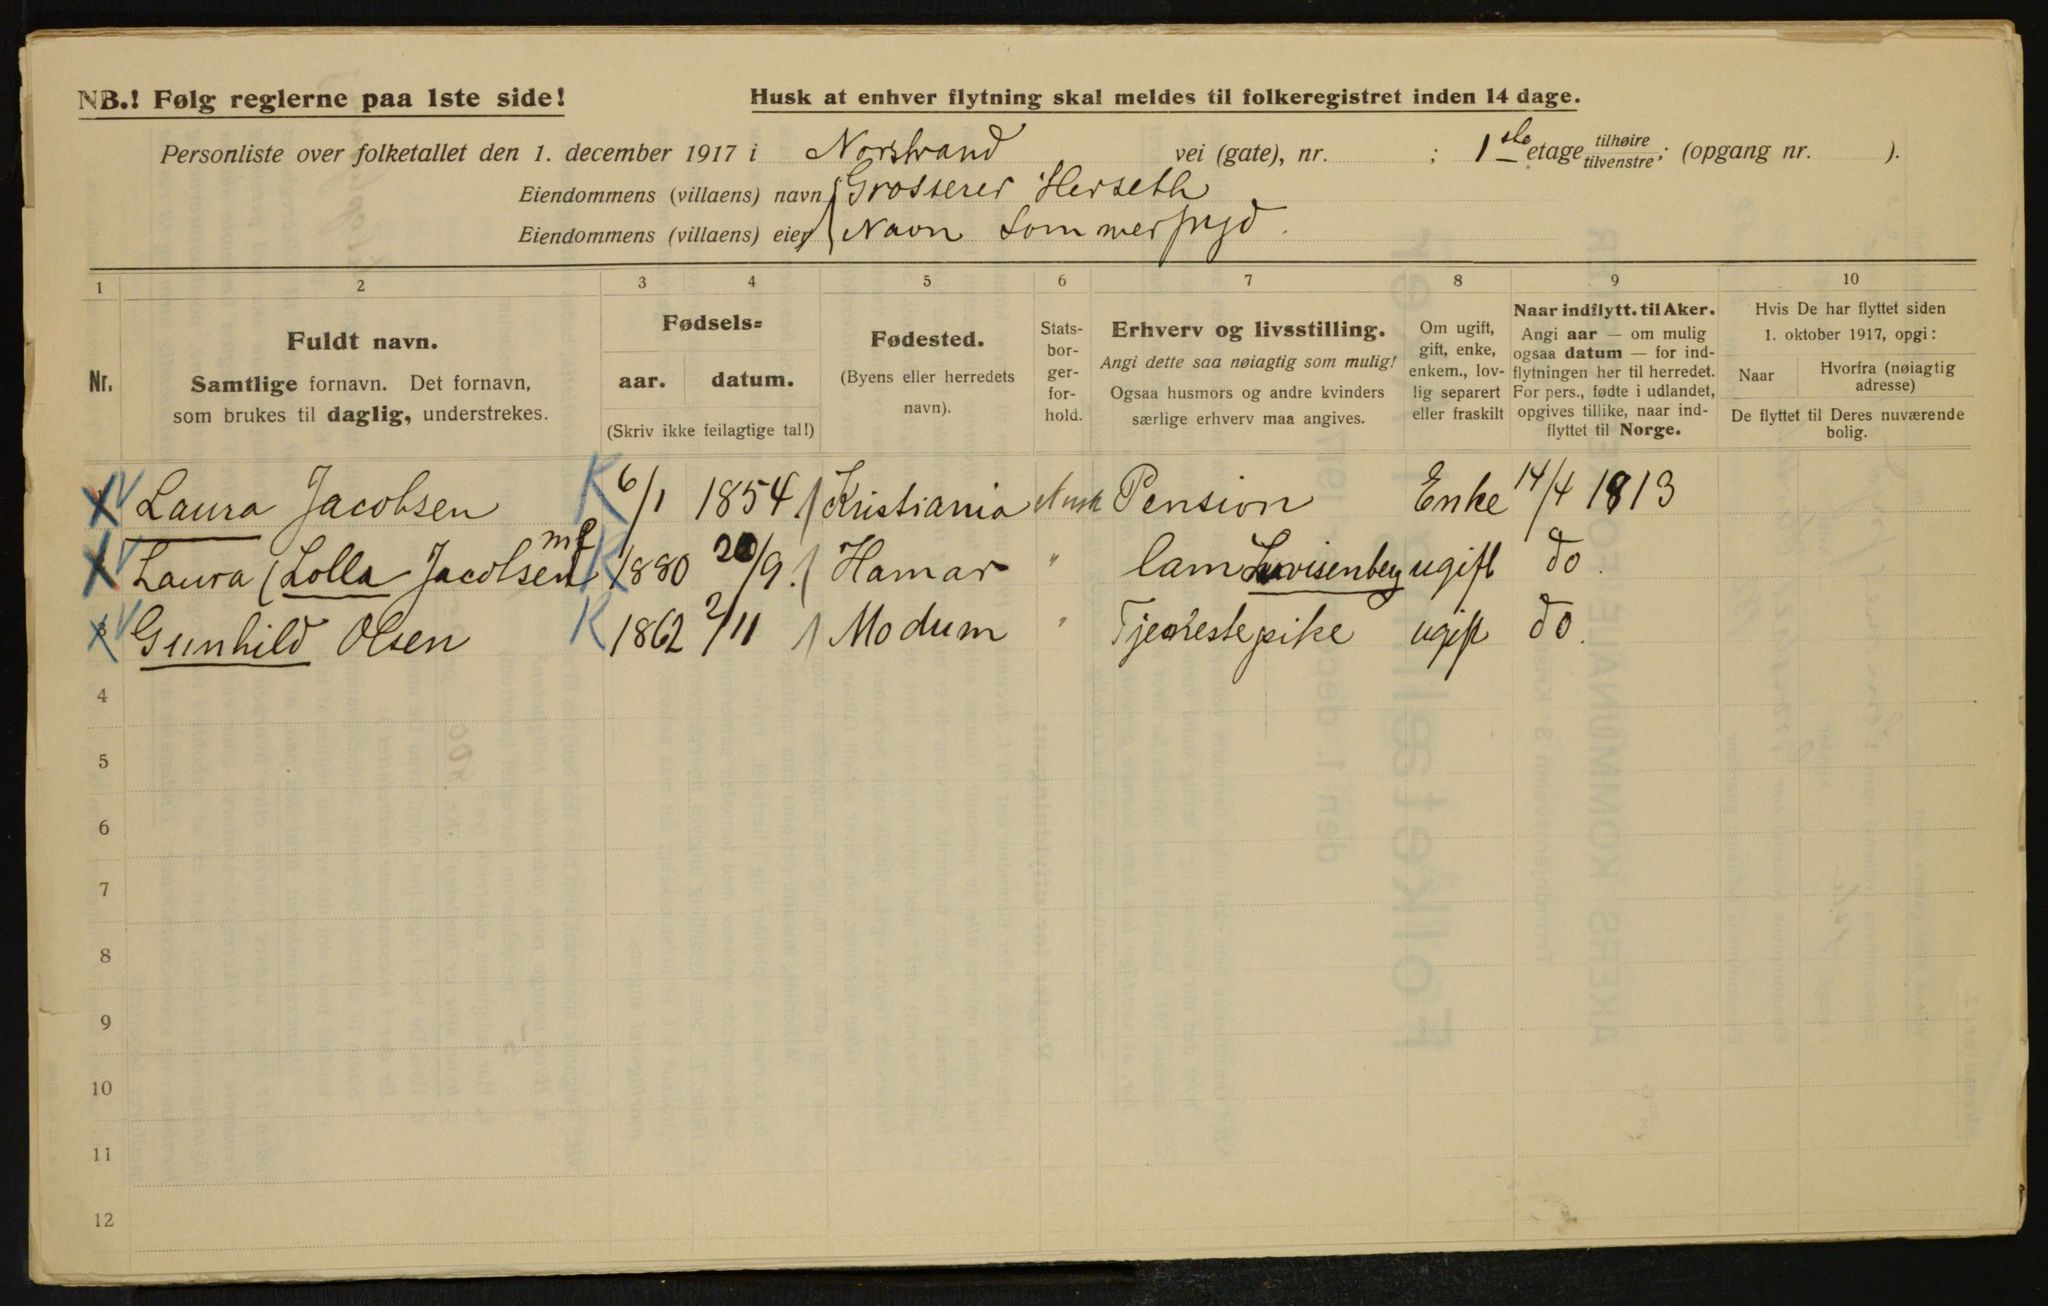 NB.! Følg reglerne paa 1ste side!
Husk at enhver flytning skal meldes til folkeregistret inden 14 dage.
Personliste over folketallet den 1. december 1917 i Norstrand vei (gate), nr. ; 1ste etage tilhøire tilvenstre; (opgang nr. ).
Eiendommens (villaens) navn Grosserer Herseth
Eiendommens (villaens) eier Navn Sommerfryd.
1 2 3 4 5 6 7 8 9 10
Nr.
Fuldt navn.
Samtlige fornavn. Det fornavn,
som brukes til daglig, understrekes.
Fødsels=
aar. datum.
(Skriv ikke feilagtige tal!)
Fødested.
(Byens eller herredets
navn).
Stats-
bor-
ger-
for-
hold.
Erhverv og livsstilling.
Angi dette saa nøiagtig som mulig!
Ogsaa husmors og andre kvinders
særlige erhverv maa angives.
Om ugift,
gift, enke,
enkem., lov-
lig separert
eller fraskilt
Naar indflytt. til Aker.
Angi aar — om mulig
ogsaa datum — for ind-
flytningen her til herredet.
For pers., fødte i udlandet,
opgives tillike, naar ind-
flyttet til Norge.
Hvis De har flyttet siden
1. oktober 1917, opgi:
Naar
Hvorfra (nøiagtig
adresse)
De flyttet til Deres nuværende
bolig.
Laura Jacobsen K 6/1 1854 Kristiania Norsk Pension Enke 14/4 1913
Laura (Lolla Jacobsen K 1880 20/9. Hamar " Lovisenberg ugift do.
Gunhild Olsen K 1862 2/11 Modum " Tjenestepike ugift do.
4
5
6
7
8
9
10
11
12